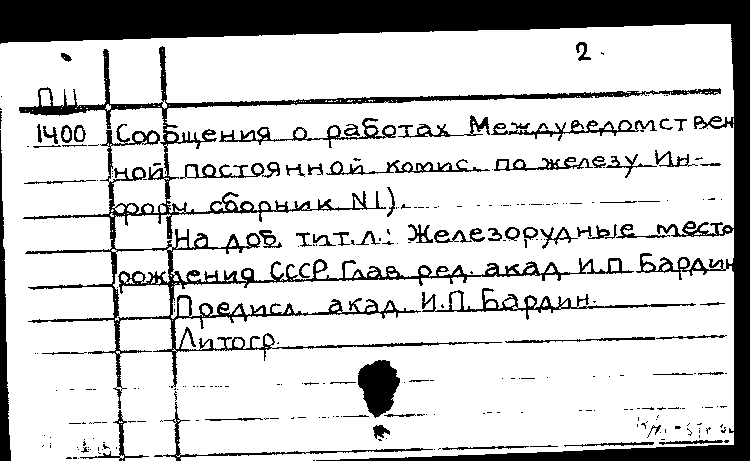 2.
П 11
1400 Сообщения о работах Междуведомствен
ной постоянной комис. по железу. Ин-
форм. сборник N1).
На доб. тит.л.: Железорудные место
рождения СССР. Глав. ред. акад. И.П. Бардин
Предисл. акад. И.П. Бардин.
Литогр.